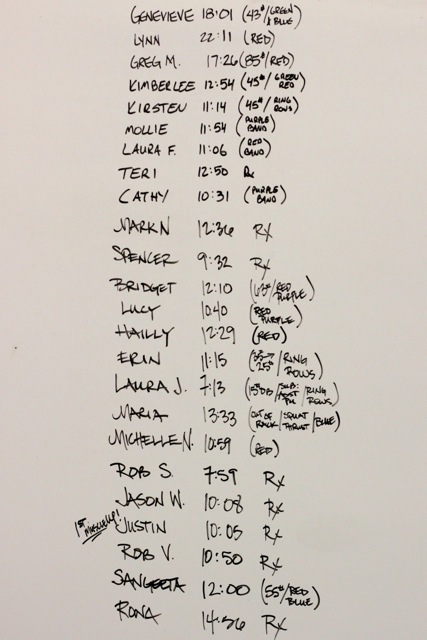 GENEVIEVE 18:01 (43#/GREEN & BLUE)
LYNN 22:11 (RED)
GREG M. 17:26 (85#/RED)
KIMBERLEE 12:54 (45#/GREEN RED)
KIRSTEN 11:14 (45#/RING ROWS)
MOLLIE 11:54 (PURPLE BAND)
LAURA F. 11:06 (RED BAND)
TERI 12:50 Rx
CATHY 10:31 (PURPLE BAND)
MARK N 12:36 Rx
SPENCER 9:32 Rx
BRIDGET 12:10 (63#/RED PURPLE)
LUCY 10:40 (RED PURPLE)
HAILLY 12:29 (RED)
ERIN 11:15 (35→25#/RING ROWS)
LAURA J. 7:13 (15#DB/SUB: ASST PU/RING ROWS)
MARIA 13:33 (OUT OF RACK/SQUAT THRUST/BLUE)
MICHELLE N. 10:59 (RED)
ROB S. 7:59 Rx
JASON W. 10:08 Rx
1ST MUSCLEUP! JUSTIN 10:05 Rx
ROB V. 10:50 Rx
SANGEETA 12:00 (55#/RED BLUE)
RONA 14:56 Rx